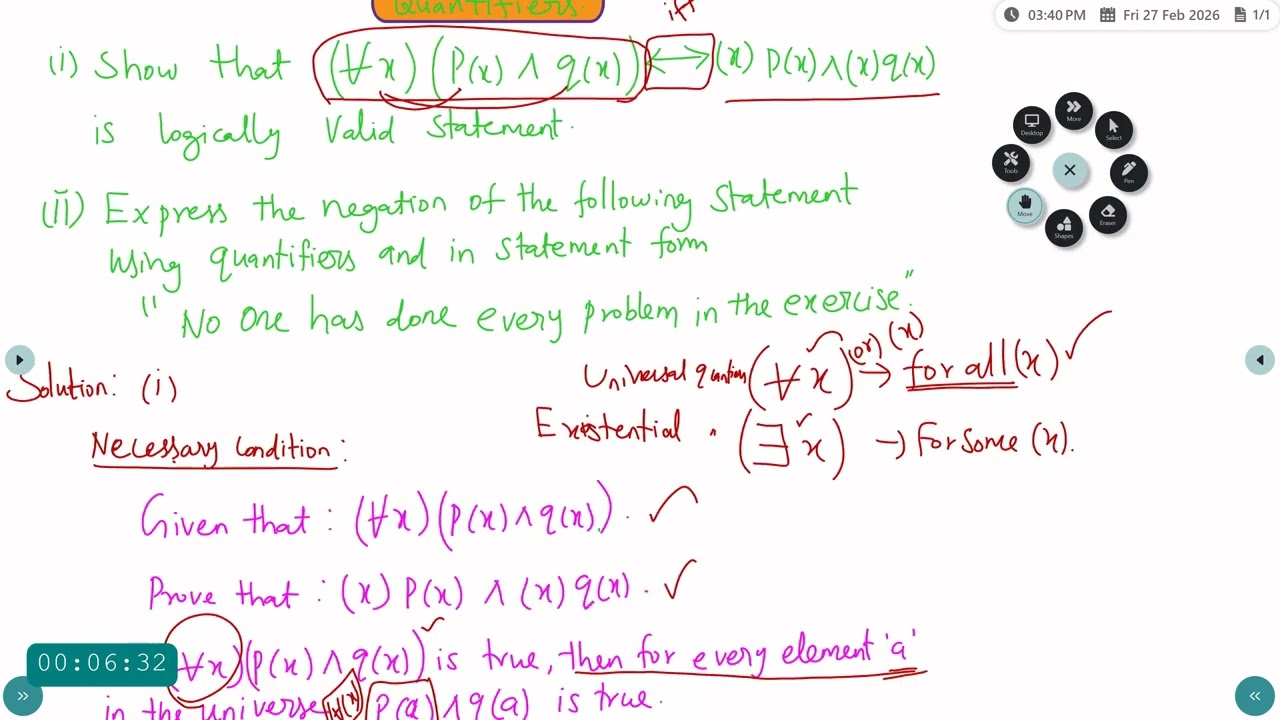 Quantifiers.
iff
03:40 PM Fri 27 Feb 2026 1/1
(i) Show that (∀x) (P(x) ∧ q(x)) ↔ (x) P(x) ∧ (x) q(x)
is logically Valid Statement.
(ii) Express the negation of the following Statement
using quantifiers and in Statement form
" No One has done every problem in the exercise."
Desktop
More
Select
Tools
Pen
Move
Shapes
Eraser
Solution: (i)
Universal (∀x) (or) (x) → for all (x) ✓
Existential " (∃x) → For Some (x).
Necessary Condition:
Given that : (∀x) (P(x) ∧ q(x)). ✓
Prove that : (x) P(x) ∧ (x) q(x). ✓
(∀x) (P(x) ∧ q(x)) is true, then for every element 'a'
in the universe P(a) ∧ q(a) is true.
00:06:32